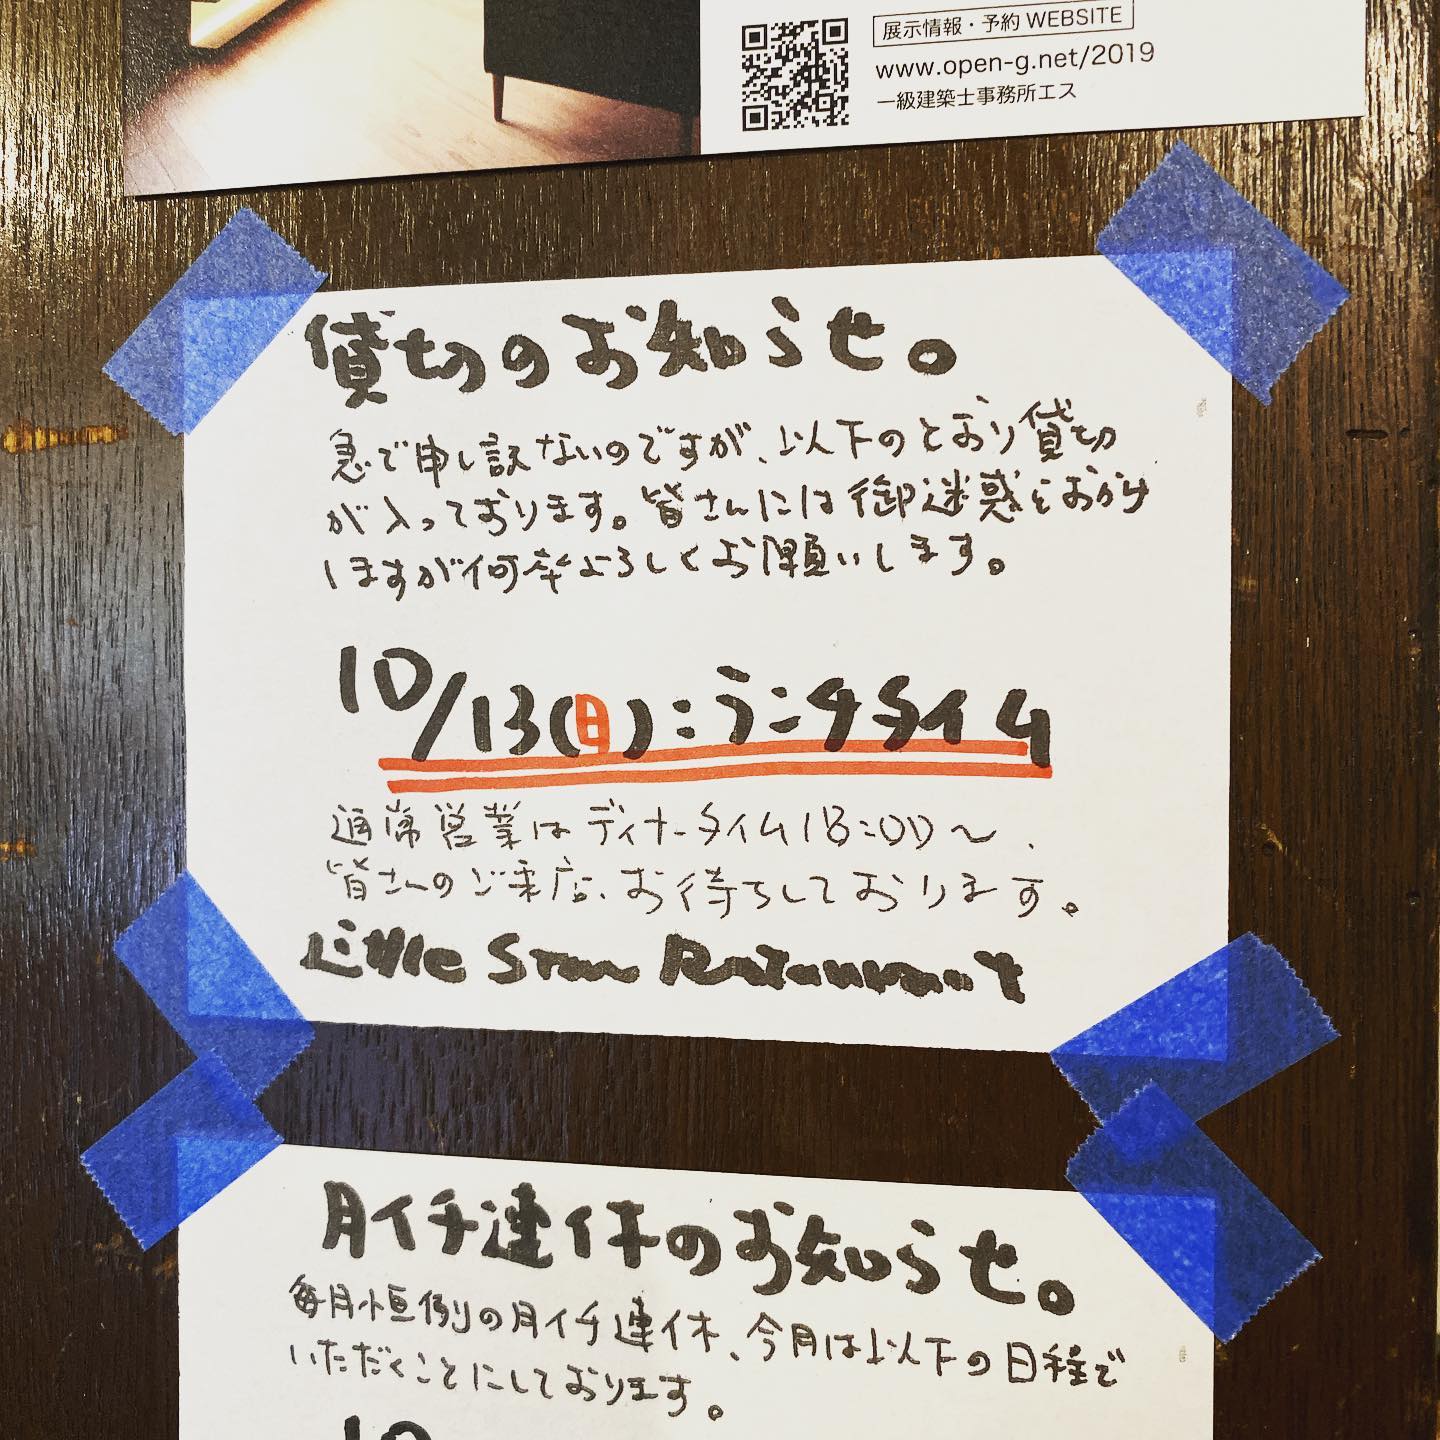 展示情報・予約 WEBSITE
www.open-g.net/2019
一級建築士事務所エス
貸切のお知らせ。
急で申し訳ないのですが、以下のとおり貸切
が入っております。皆さんには御迷惑をおかけ
しますが何卒よろしくお願いします。
10/13(日):ランチタイム
通常営業はディナータイム18:00〜、
皆さんのご来店、お待ちしております。
Little Star Restaurant
月イチ連休のお知らせ。
毎月恒例の月イチ連休、今月は以下の日程で
いただくことにしております。
10